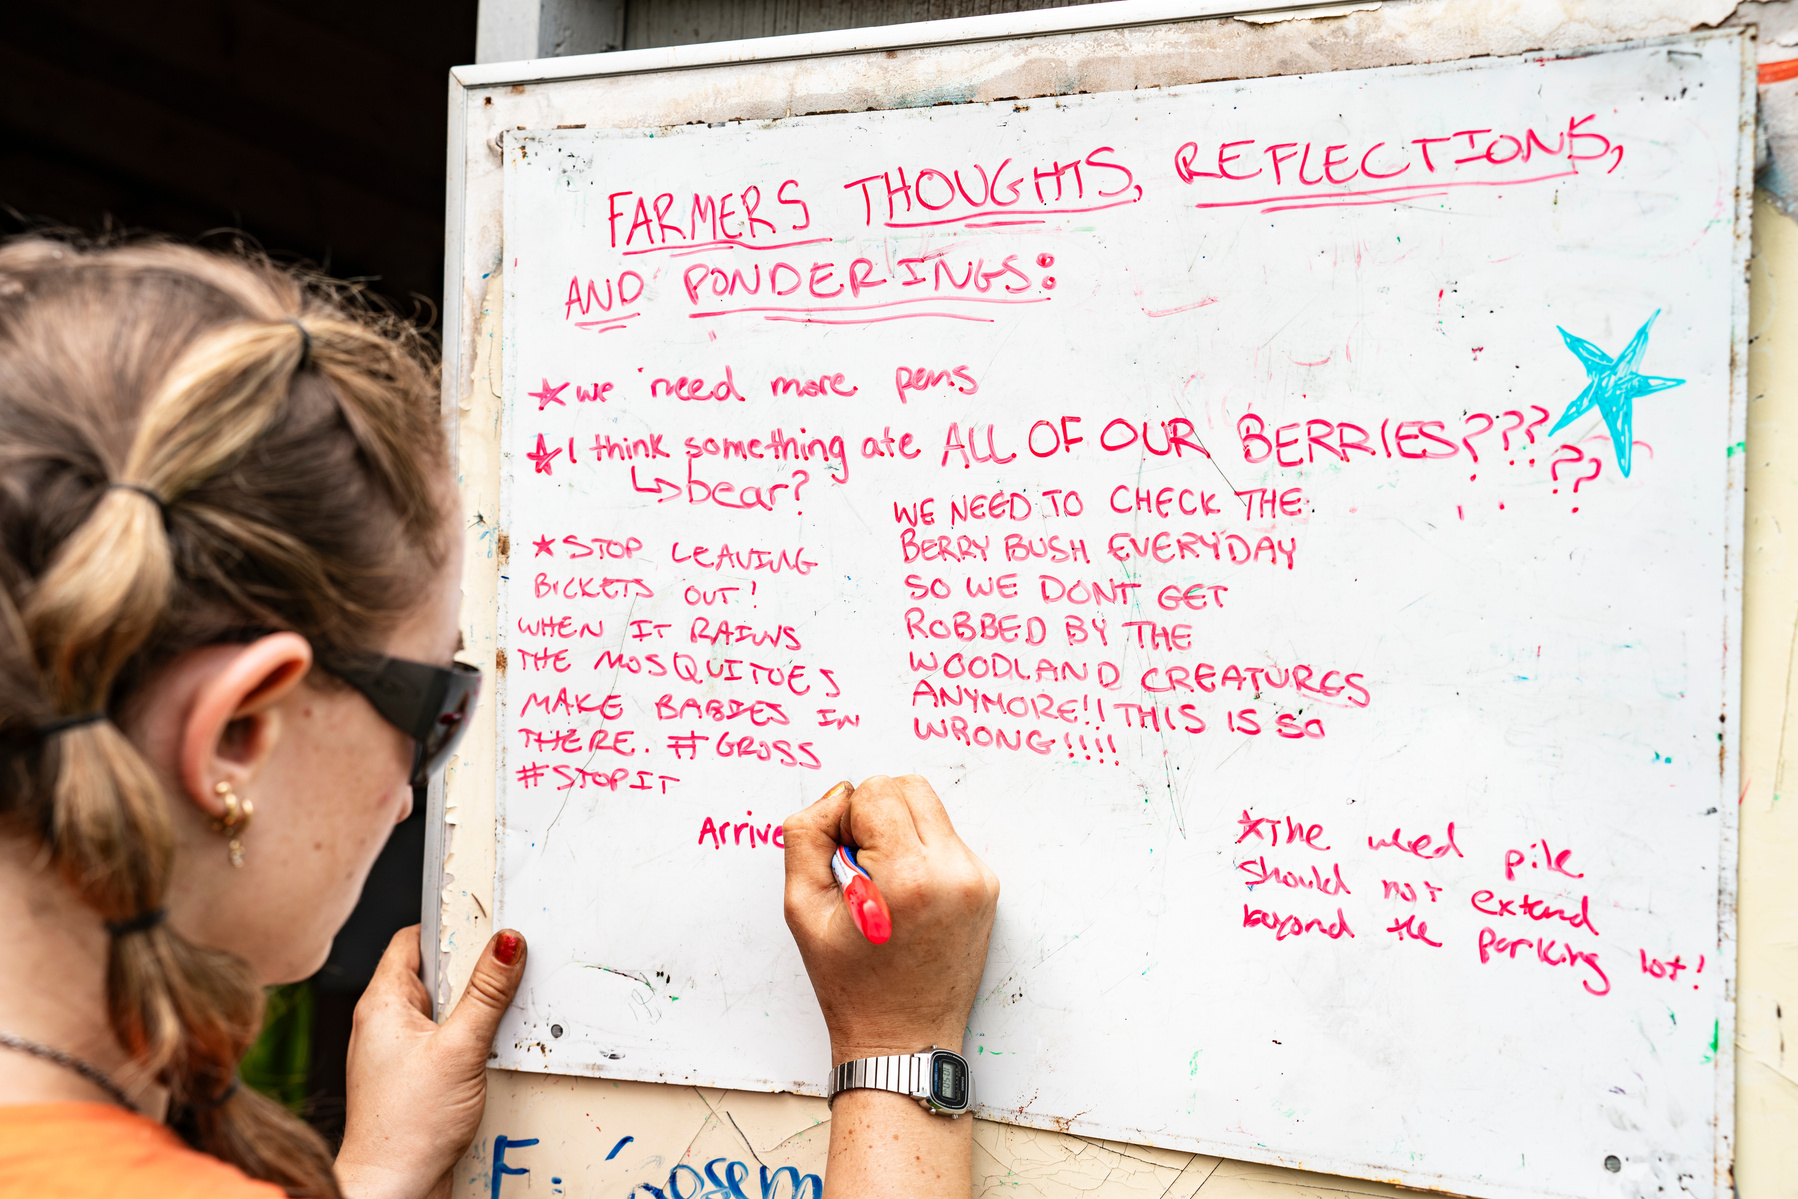 FARMERS THOUGHTS, REFLECTIONS,
AND PONDERINGS:
we need more pens
I think something ate ALL OF OUR BERRIES???
??
bear?
STOP LEAVING
BICKETS OUT!
WHEN IT RAINS
THE MOSQUITOES
MAKE BABIES IN
THERE. #GROSS
#STOPIT
WE NEED TO CHECK THE
BERRY BUSH EVERYDAY
SO WE DONT GET
ROBBED BY THE
WOODLAND CREATURES
ANYMORE!! THIS IS SO
WRONG!!!!
Arrive
The weed pile
should not extend
beyond the parking lot!